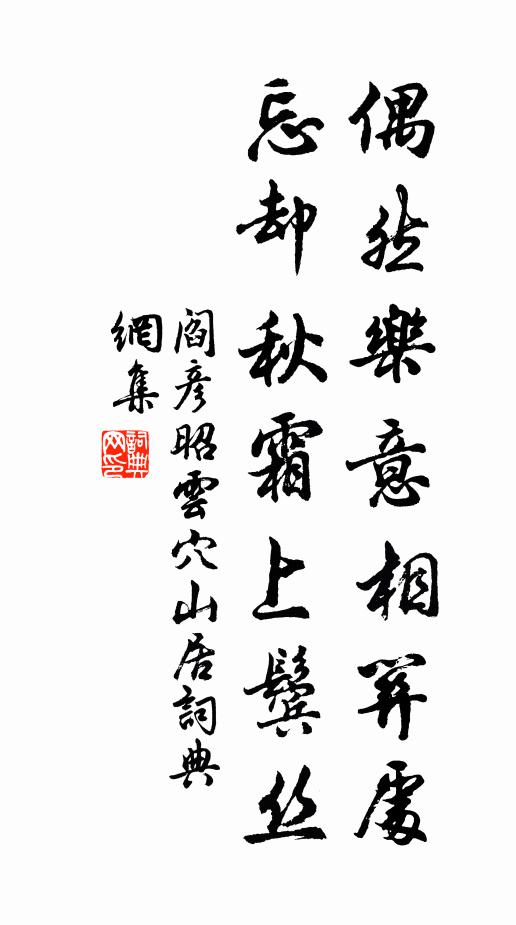 偶然樂意相關處
忘却秋霜上鬢絲
閻彦昭雲穴山居詞典
網集
詞典
网印